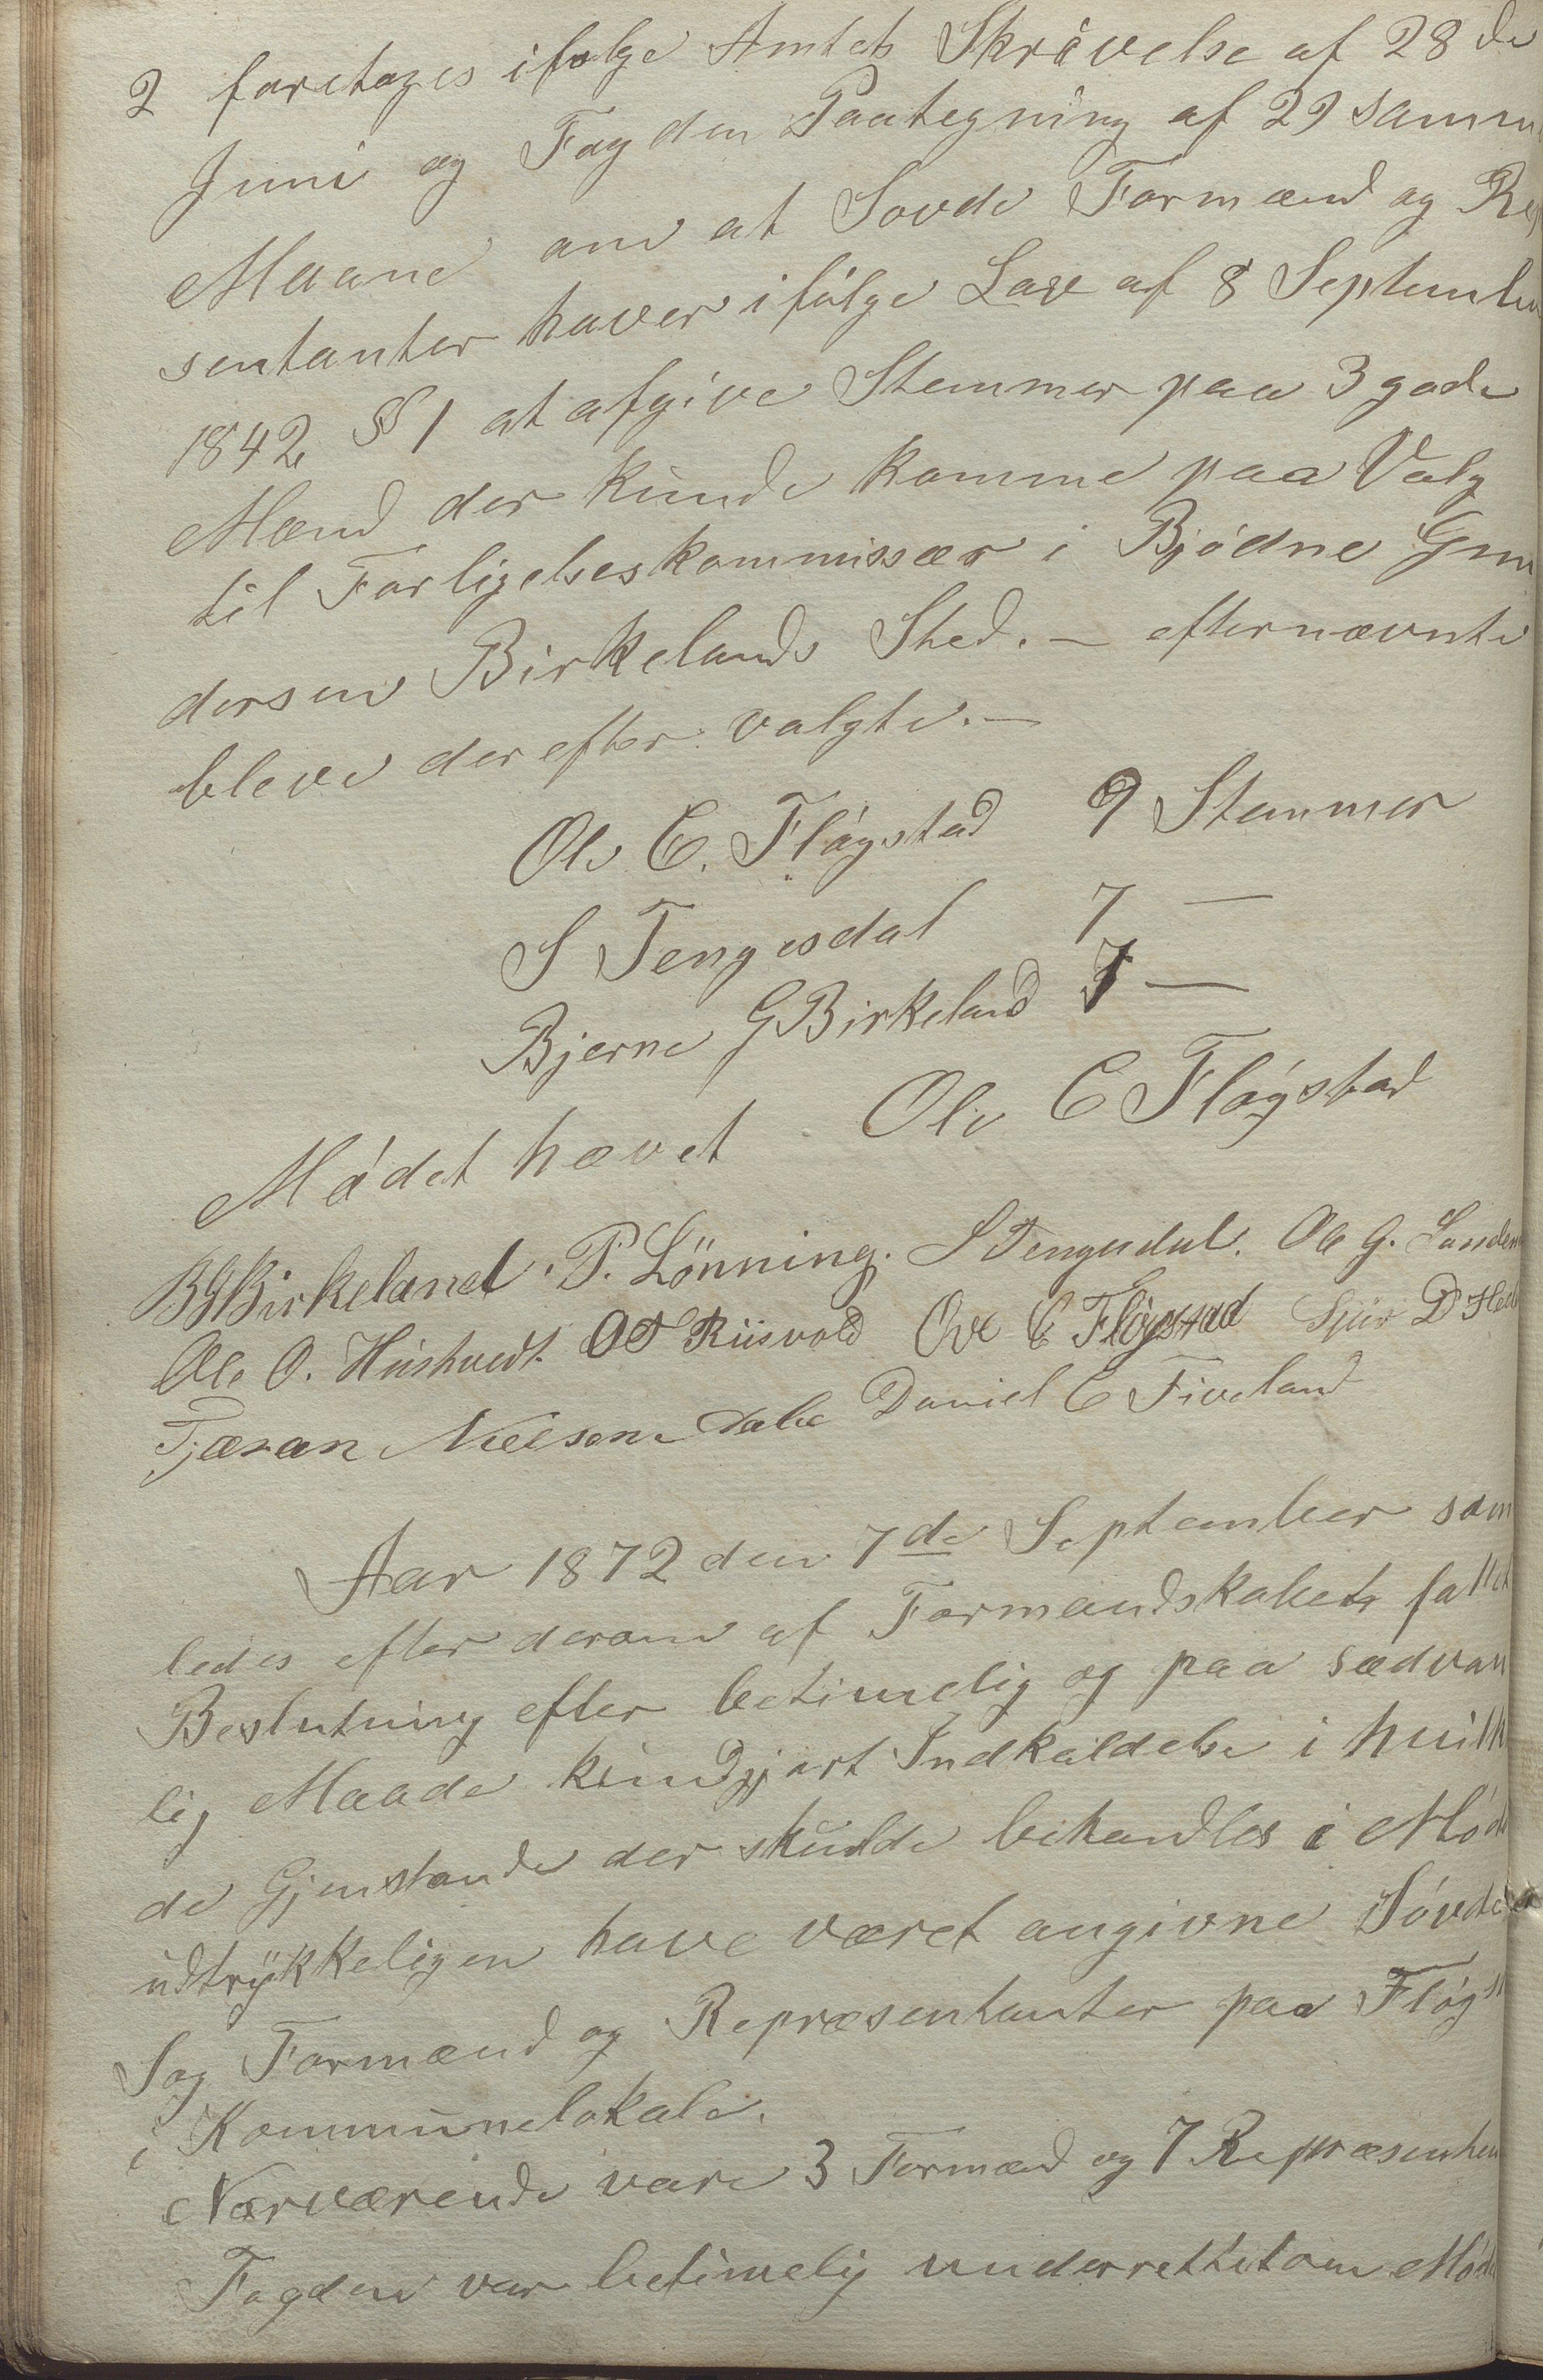 2 foretages ifølge Amtets Skrivelse af 28 de
Juni og Fogden Paategning af 29 samme
Maane om at Sovde Formænd og Rep
sentanter haver ifølge Lov af 8 Septemb
1842 § 1 at afgive Stemmer paa 3 gode
Mænd der kunde komme paa Valg
til Forligelseskommissær i Bjødne Gun
dersen Birkelands Sted. — efternævnte
bleve derefter valgte. —
Ole C. Fløgstad 9 Stemmer
S Tengesdal 7 —
Bjerne G Birkeland 7 —
Mødet hævet Ole C Fløgstad
BGBirkeland. P. Lönning. S Tengesdal. Ole G. Sanden
Ole O. Hustvedt. Riisvold Ove C Fløgstad Sjur D
Tjæran Neelson Daniel C Fiveland
Aar 1872 den 7de September sam
ledes efter derom af Formandskabet fattet
Beslutning efter betimelig og paa sædvan
lig Maade kundgjort Indkaldelse i hvilk
de Gjenstande der skulde behandles i Møde
udtrykkeligen have været angivne Søvde
Sog Formænd og Repræsentanter paa Fløgst
i Kommunelokale.
Nærværende vare 3 Formænd og 7 Repræsentan
Fogden var betimelig underrettet om Møde